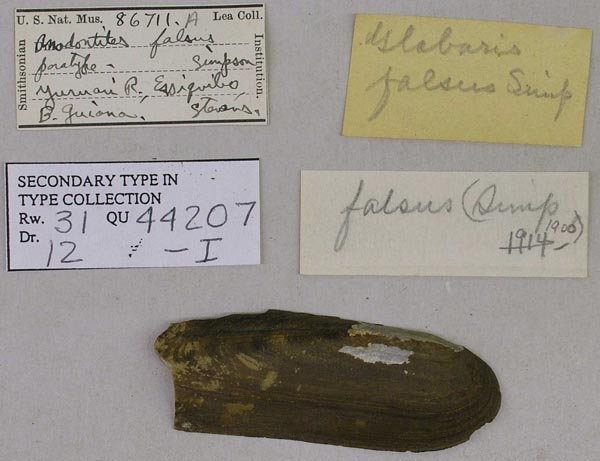 U. S. Nat. Mus. 86711.A Lea Coll.
Smithsonian
Institution.
Anodontites falsus
paratype - Simpson
Yuruari R., Essiquibo,
B. Guiana. Stevens.
Glabaris
falsus Simp
SECONDARY TYPE IN
TYPE COLLECTION
Rw. 31 QU 44207
Dr. 12 - I
falsus (Simp
1900)
1914